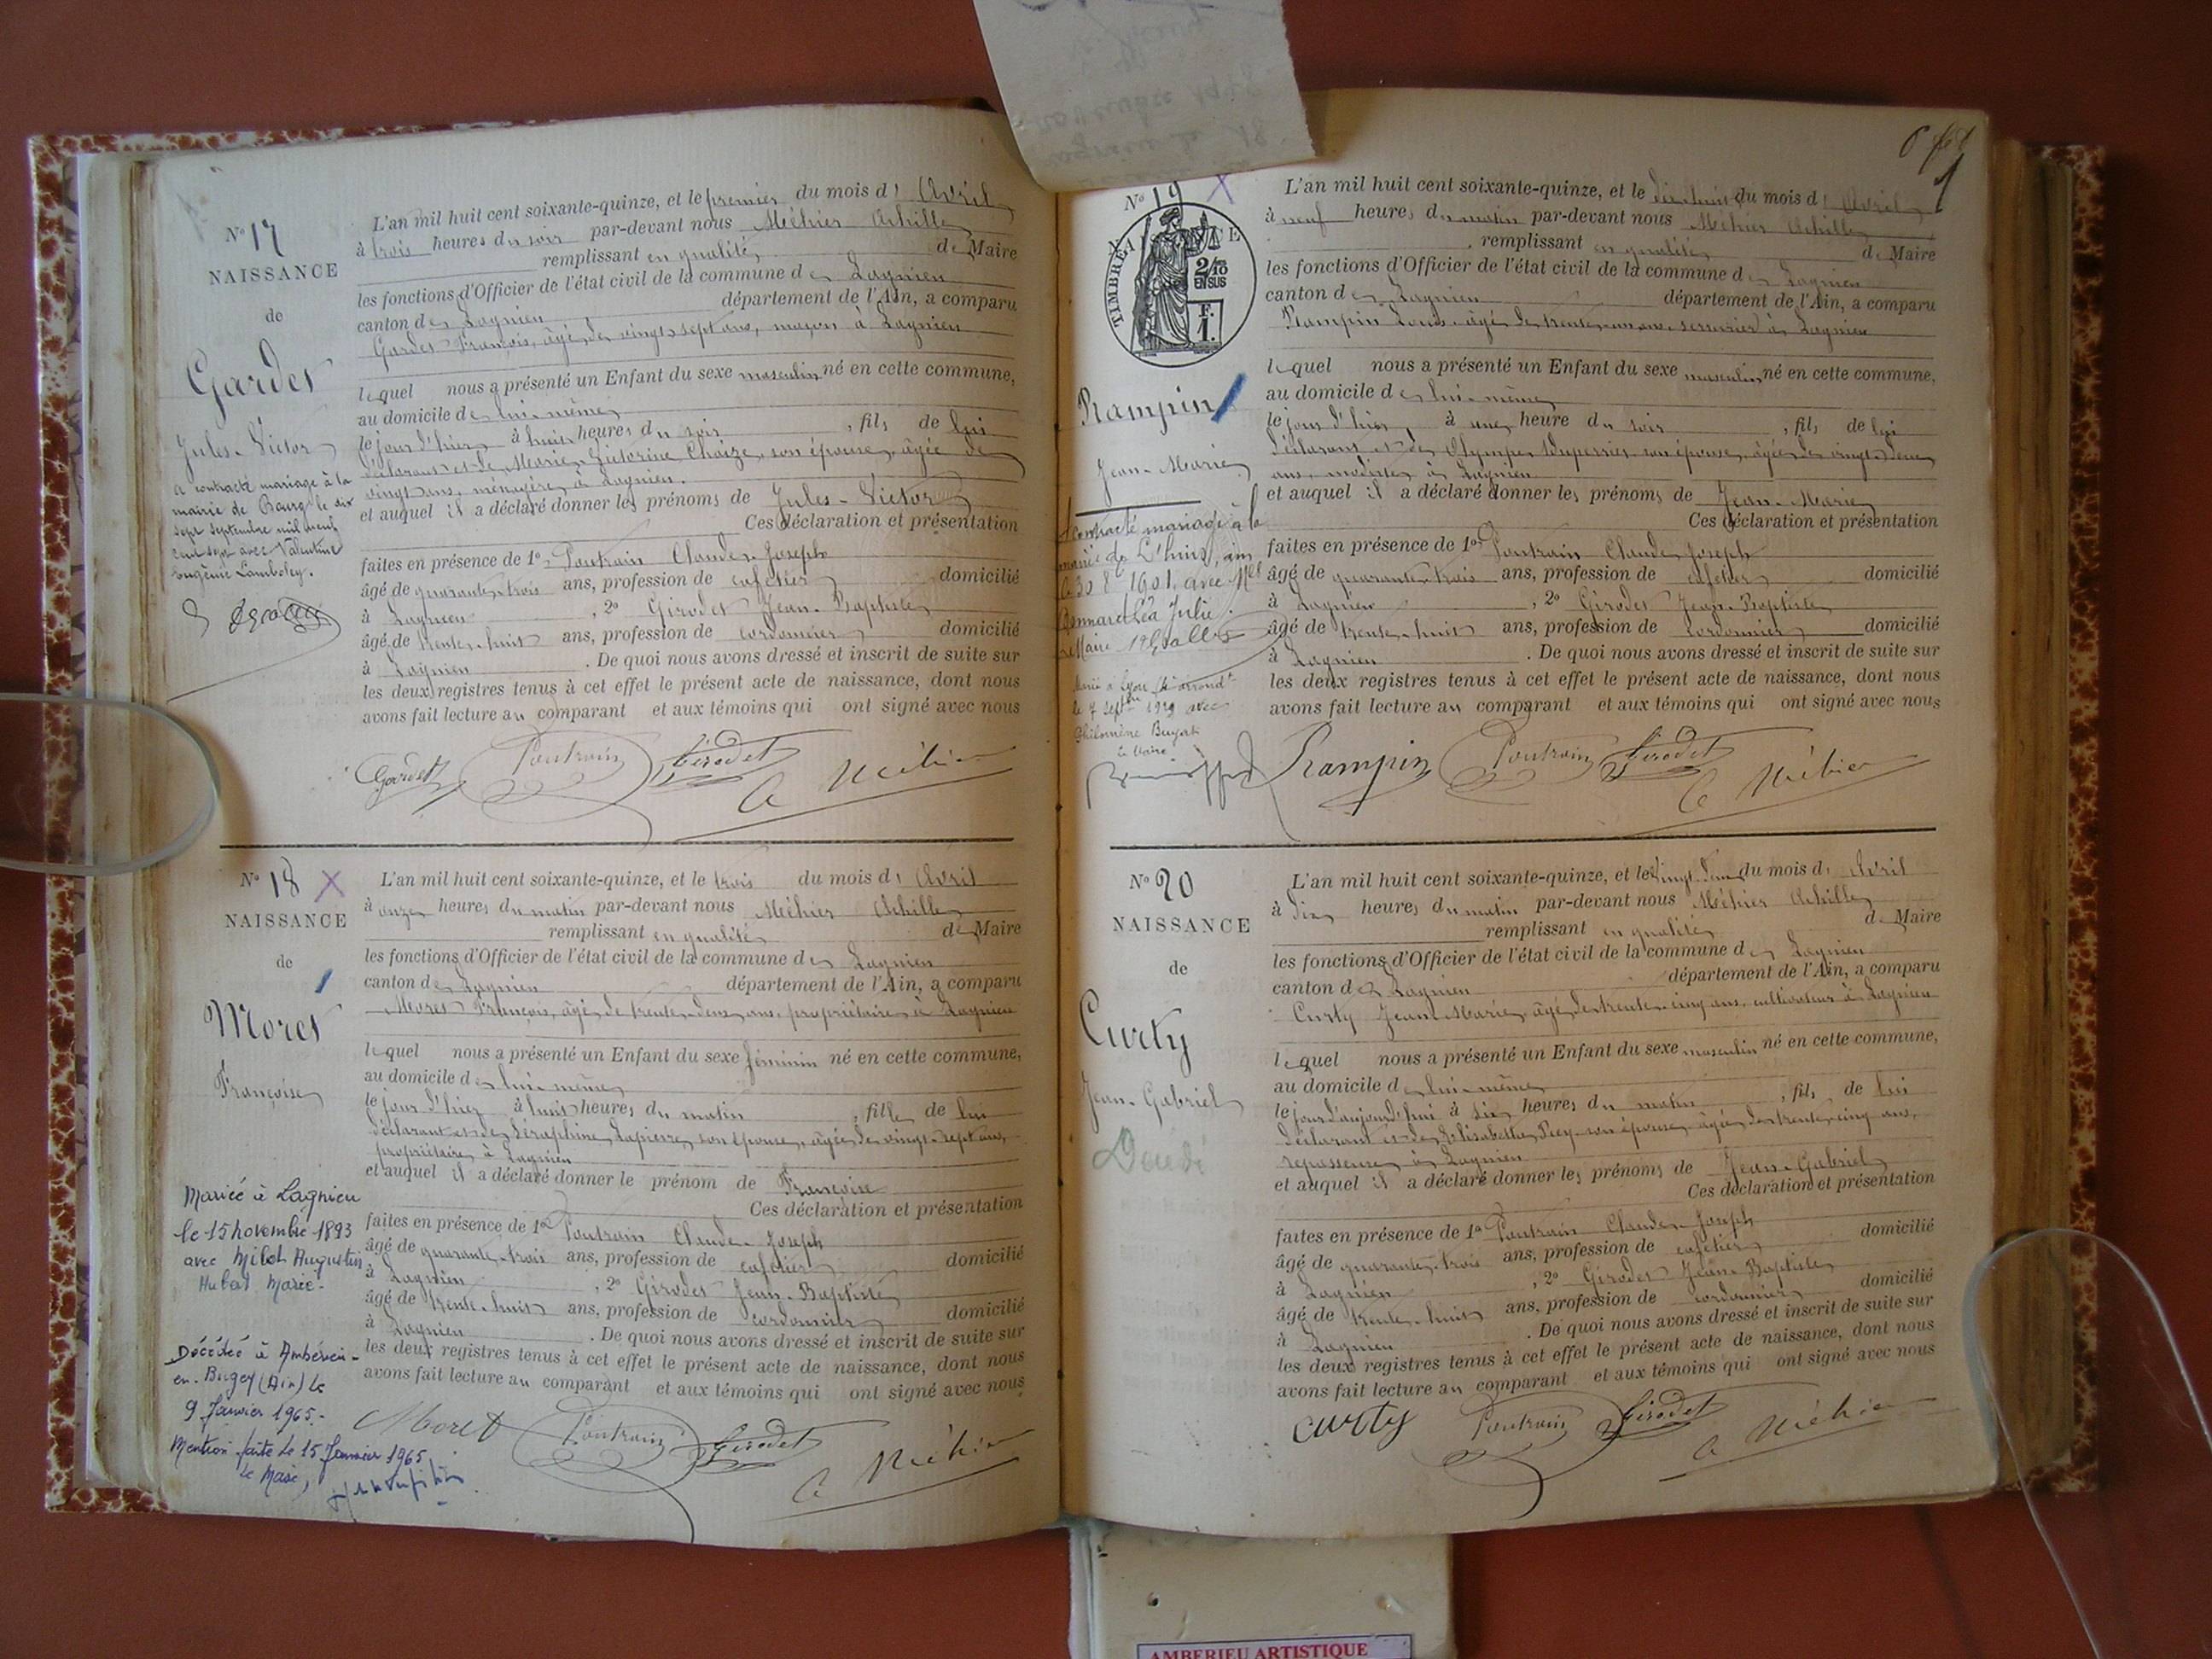 N° 17
NAISSANCE
de
Gardet
Jules-Victor
a contracté mariage à la
mairie de Bourg le dix
sept septembre mil neuf
cent sept avec Valentine
Eugénie Lamboley.
L'an mil huit cent soixante-quinze, et le premier du mois d' Avril
à trois heures du soir par-devant nous Méhier Achille
remplissant en qualité de Maire
les fonctions d'Officier de l'état civil de la commune de Lagnieu
canton de Lagnieu département de l'Ain, a comparu
Gardet François, âgé de vingt-sept ans, maçon à Lagnieu
lequel nous a présenté un Enfant du sexe masculin né en cette commune,
au domicile de lui-même
le jour d'hier à huit heures du soir, fils de lui
déclarant et de Marie-Victorine Chaize, son épouse, âgée de
vingt ans, ménagère à Lagnieu.
et auquel il a déclaré donner les prénoms de Jules-Victor
Ces déclaration et présentation
faites en présence de 1° Poutrain Claude-Joseph
âgé de quarante-trois ans, profession de cafetier domicilié
à Lagnieu, 2° Girodet Jean-Baptiste
âgé de trente-huit ans, profession de cordonnier domicilié
à Lagnieu. De quoi nous avons dressé et inscrit de suite sur
les deux registres tenus à cet effet le présent acte de naissance, dont nous
avons fait lecture au comparant et aux témoins qui ont signé avec nous
Gardet Poutrain Girodet A Méhier
N° 18
NAISSANCE
de
Moret
Françoise
Mariée à Lagnieu
le 15 novembre 1893
avec Milot Augustin
Hubat Marie-
Décédée à Ambérieu-
en-Bugey (Ain) le
9 Janvier 1965.-
Mention faite le 15 Janvier 1965
le Maire,
L'an mil huit cent soixante-quinze, et le trois du mois d' Avril
à onze heures du matin par-devant nous Méhier Achille
remplissant en qualité de Maire
les fonctions d'Officier de l'état civil de la commune de Lagnieu
canton de Lagnieu département de l'Ain, a comparu
Moret François, âgé de trente-deux ans, propriétaire à Lagnieu
lequel nous a présenté un Enfant du sexe féminin né en cette commune,
au domicile de lui-même
le jour d'hier à huit heures du matin, fille de lui
déclarant et de Séraphine Lapierre, son épouse, âgée de vingt-sept ans,
propriétaire à Lagnieu
et auquel il a déclaré donner le prénom de Françoise
Ces déclaration et présentation
faites en présence de 1° Poutrain Claude-Joseph
âgé de quarante-trois ans, profession de cafetier domicilié
à Lagnieu, 2° Girodet Jean-Baptiste
âgé de trente-huit ans, profession de cordonnier domicilié
à Lagnieu. De quoi nous avons dressé et inscrit de suite sur
les deux registres tenus à cet effet le présent acte de naissance, dont nous
avons fait lecture au comparant et aux témoins qui ont signé avec nous
Moret Poutrain Girodet A Méhier
N° 19
TIMBRE NA CE
2/10
EN SUS
F.
1.
Rampin
Jean-Marie
A contracté mariage à la
mairie de L'huis, Ain
le 30 8 1901, avec Mlle
Bonnard Léa Julie.
Le Maire
Marié à Lyon 4 arrondt
le 7 Septbre 1929 avec
Philomène Buyat
Le Maire
L'an mil huit cent soixante-quinze, et le dix-huit du mois d' Avril
à neuf heures du matin par-devant nous Méhier Achille
remplissant en qualité de Maire
les fonctions d'Officier de l'état civil de la commune de Lagnieu
canton de Lagnieu département de l'Ain, a comparu
Rampin Louis, âgé de trente-un ans, serrurier à Lagnieu
lequel nous a présenté un Enfant du sexe masculin né en cette commune,
au domicile de lui-même
le jour d'hier, à une heure du soir, fils de lui
déclarant et de Olympe Duperrier son épouse, âgée de vingt-deux
ans, modiste à Lagnieu
et auquel il a déclaré donner les prénoms de Jean-Marie
Ces déclaration et présentation
faites en présence de 1° Poutrain Claude Joseph
âgé de quarante-trois ans, profession de cafetier domicilié
à Lagnieu, 2° Girodet Jean-Baptiste
âgé de trente-huit ans, profession de cordonnier domicilié
à Lagnieu. De quoi nous avons dressé et inscrit de suite sur
les deux registres tenus à cet effet le présent acte de naissance, dont nous
avons fait lecture au comparant et aux témoins qui ont signé avec nous
Rampin Poutrain Girodet A Méhier
N° 20
NAISSANCE
de
Curty
Jean-Gabriel
L'an mil huit cent soixante-quinze, et le vingt-deux du mois d' Avril
à dix heures du matin par-devant nous Méhier Achille
remplissant en qualité de Maire
les fonctions d'Officier de l'état civil de la commune de Lagnieu
canton de Lagnieu département de l'Ain, a comparu
Curty Jean-Marie, âgé de trente-cinq ans, cultivateur à Lagnieu
lequel nous a présenté un Enfant du sexe masculin né en cette commune,
au domicile de lui-même
le jour d'aujourd'hui à six heures du matin, fils de lui
déclarant et de Elisabeth Pey son épouse, âgée de trente-cinq ans,
repasseuse à Lagnieu
et auquel il a déclaré donner les prénoms de Jean-Gabriel
Ces déclaration et présentation
faites en présence de 1° Poutrain Claude-Joseph
âgé de quarante-trois ans, profession de cafetier domicilié
à Lagnieu, 2° Girodet Jean-Baptiste
âgé de trente-huit ans, profession de cordonnier domicilié
à Lagnieu. De quoi nous avons dressé et inscrit de suite sur
les deux registres tenus à cet effet le présent acte de naissance, dont nous
avons fait lecture au comparant et aux témoins qui ont signé avec nous
Curty Poutrain Girodet A Méhier
AMBERIEU ARTISTIQUE